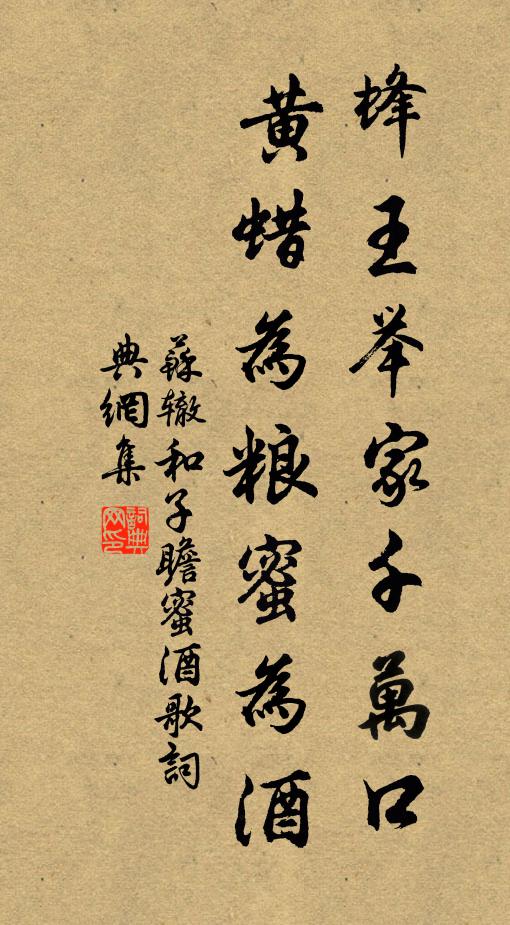 蜂王举家千萬口
黄蜡為粮蜜為酒
蘇辙和子瞻蜜酒歌詞
典網集
詞典網印